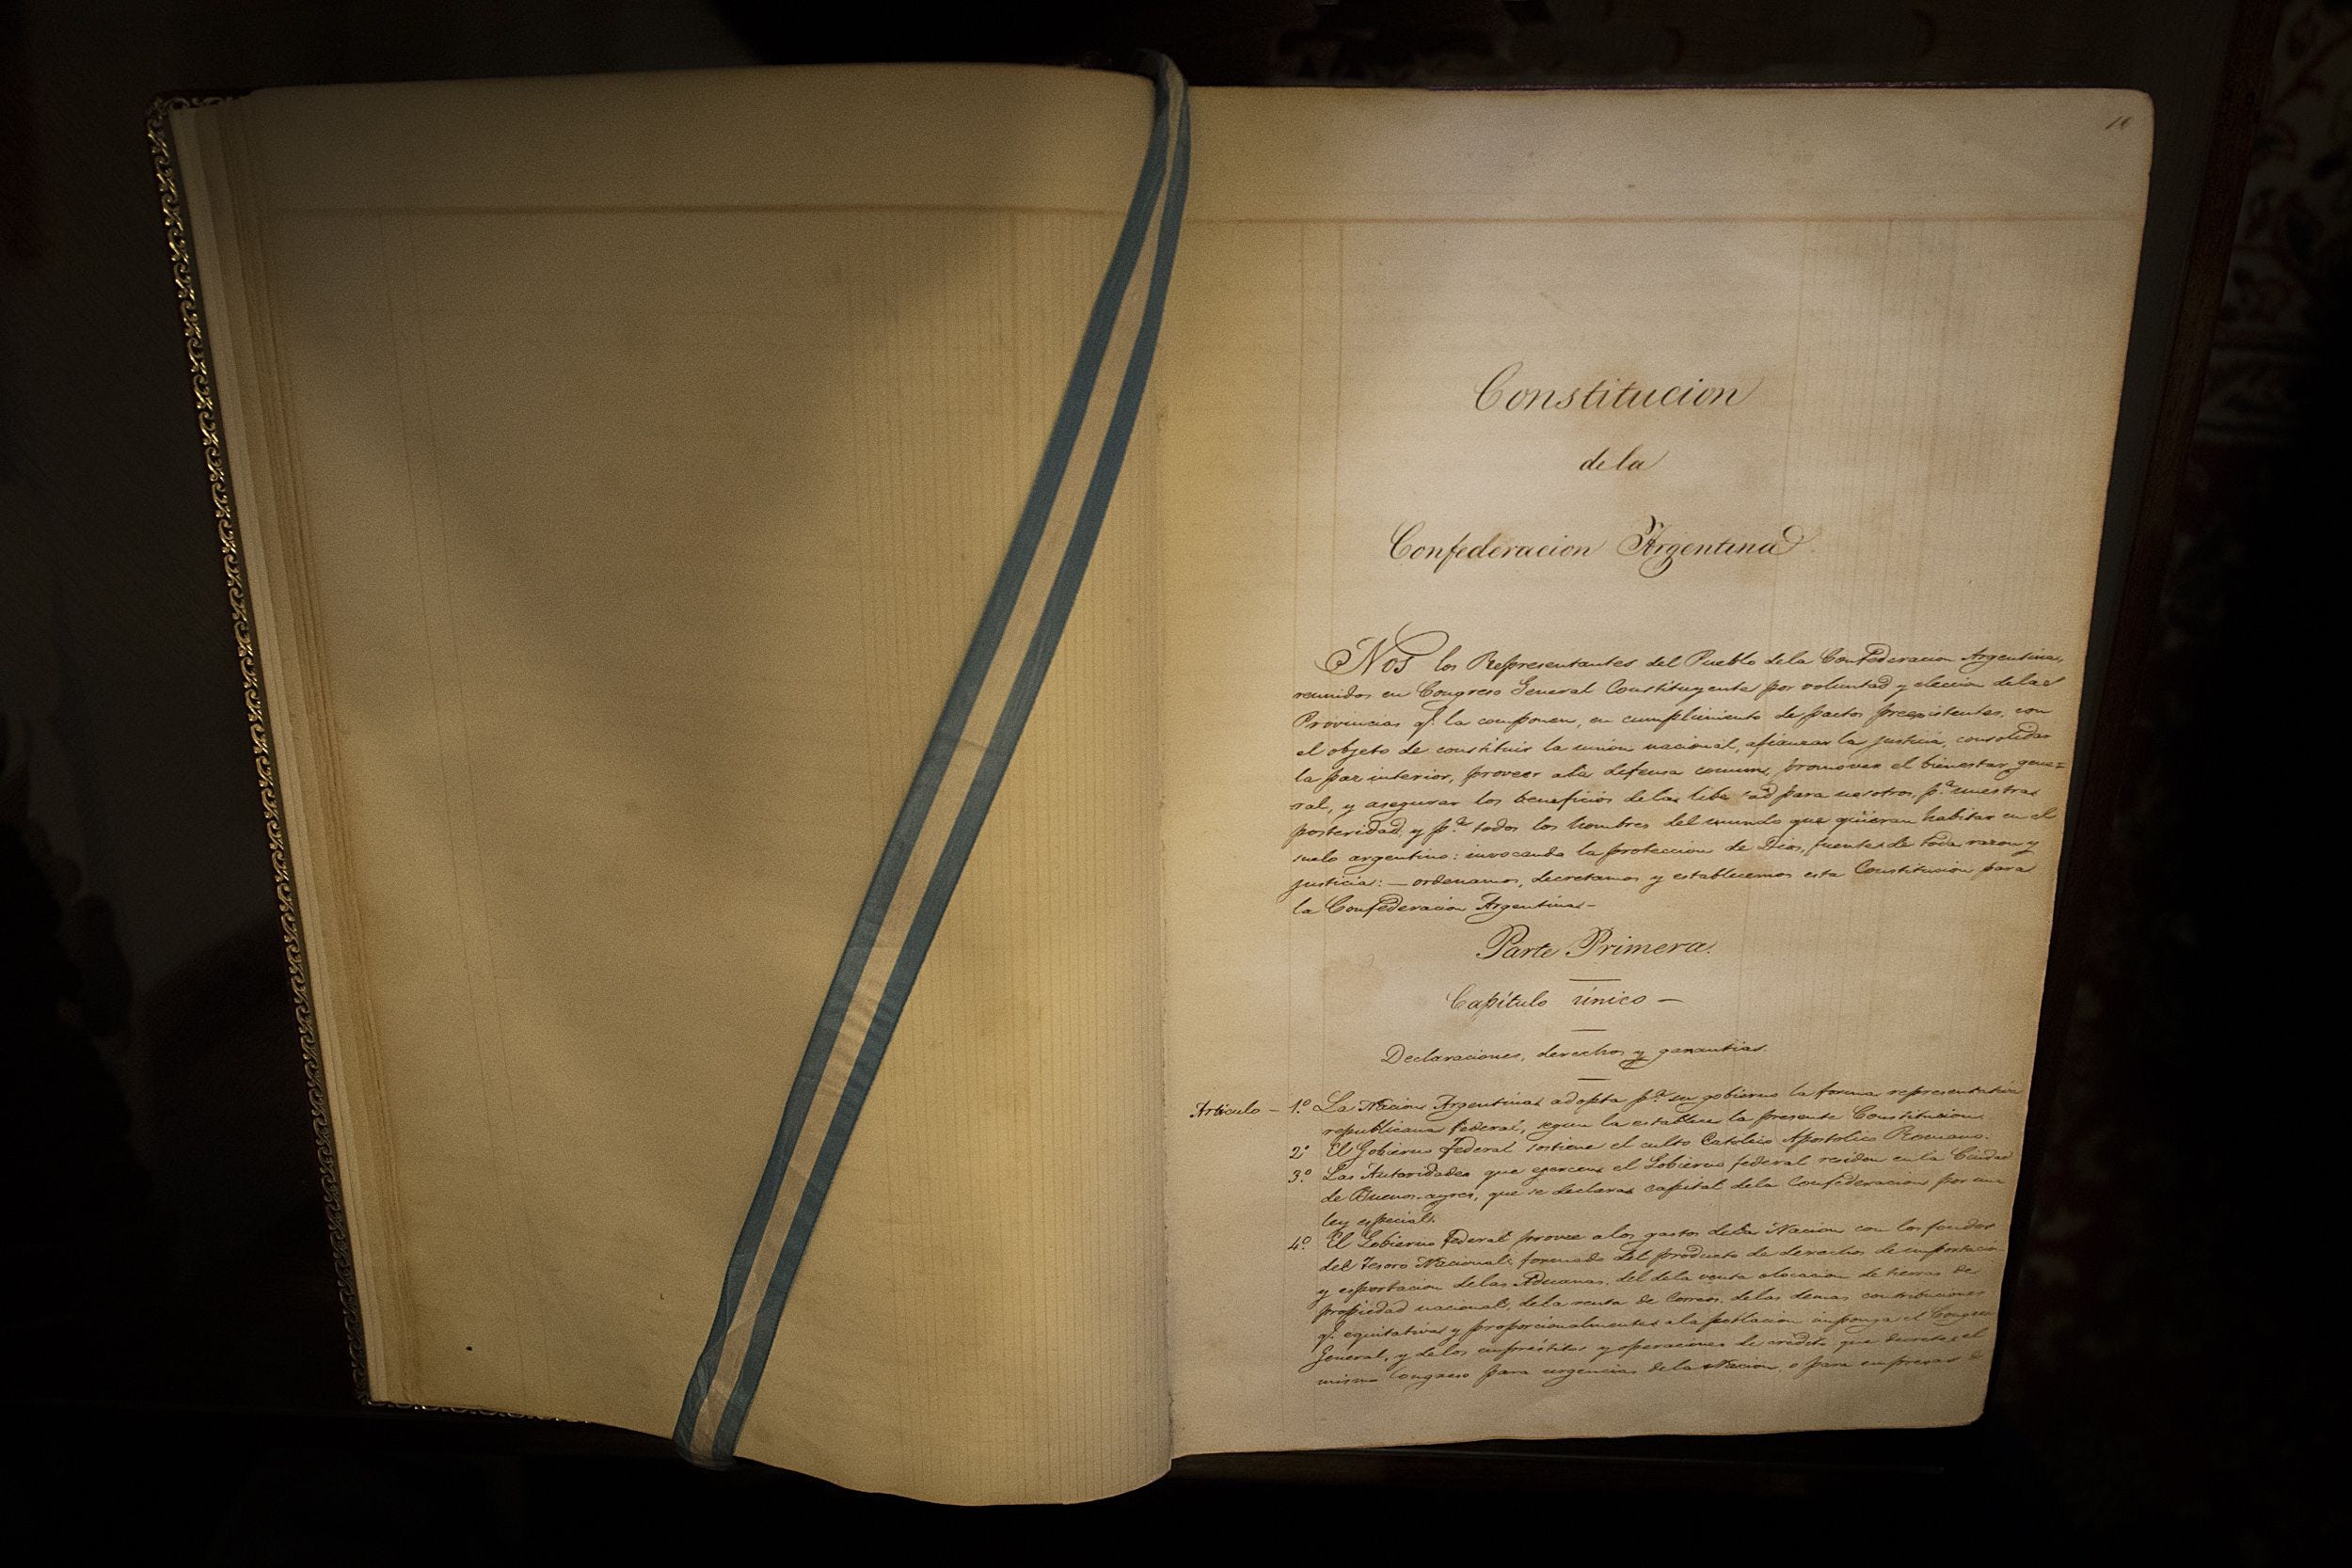 Constitucion
de la
Confederacion Argentina
Nos los Representantes del Pueblo dela Confederacion Argentina,
reunidos en Congreso General Constituyente por voluntad y eleccion delas
Provincias q.e la componen, en cumplimiento de pactos preexistentes, con
el objeto de constituir la union nacional, afianzar la justicia, consolidar
la paz interior, proveer ala defensa comun, promover el bienestar gene=
ral, y asegurar los beneficios dela libertad para nosotros, p.a nuestra
posteridad, y p.a todos los hombres del mundo que quieran habitar en el
suelo argentino: invocando la proteccion de Dios, fuente de toda razon y
justicia: — ordenamos, decretamos y establecemos esta Constitucion para
la Confederacion Argentina—
Parte Primera.
Capítulo único —
Declaraciones, derechos y garantias.
Articulo — 1.º La Nacion Argentina adopta p.a su gobierno la forma representativa
republicana federal, segun la establece la presente Constitucion.
2.º El Gobierno Federal sostiene el culto Católico Apostolico Romano.
3.º Las Autoridades que ejercen el Gobierno federal residen en la Ciudad
de Buenos-ayres, que se declara capital dela Confederacion por una
ley especial.
4.º El Gobierno Federal provee alos gastos dela Nacion con los fondos
del Tesoro Nacional, formado del producto de derechos de importacion
y esportacion delas Aduanas, del dela venta olocacion de tierras de
propiedad nacional, dela renta de Correos, delas demas contribuciones
q.e equitativa y proporcionalmente ala poblacion imponga el Congreso
General, y delos empréstitos y operaciones de crédito que decrete el
mismo Congreso para urgencias dela Nacion, o para empresas de